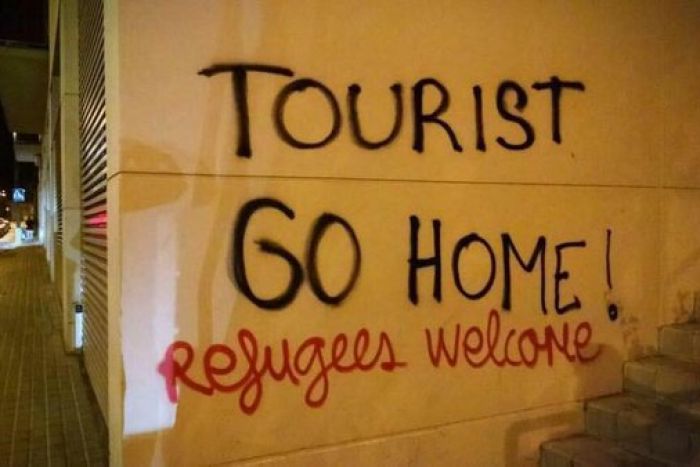 TOURIST
GO HOME!
Refugees welcome